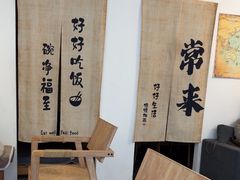 好好吃饭
碗净福至
Eat well Feel good
常来
好好生活